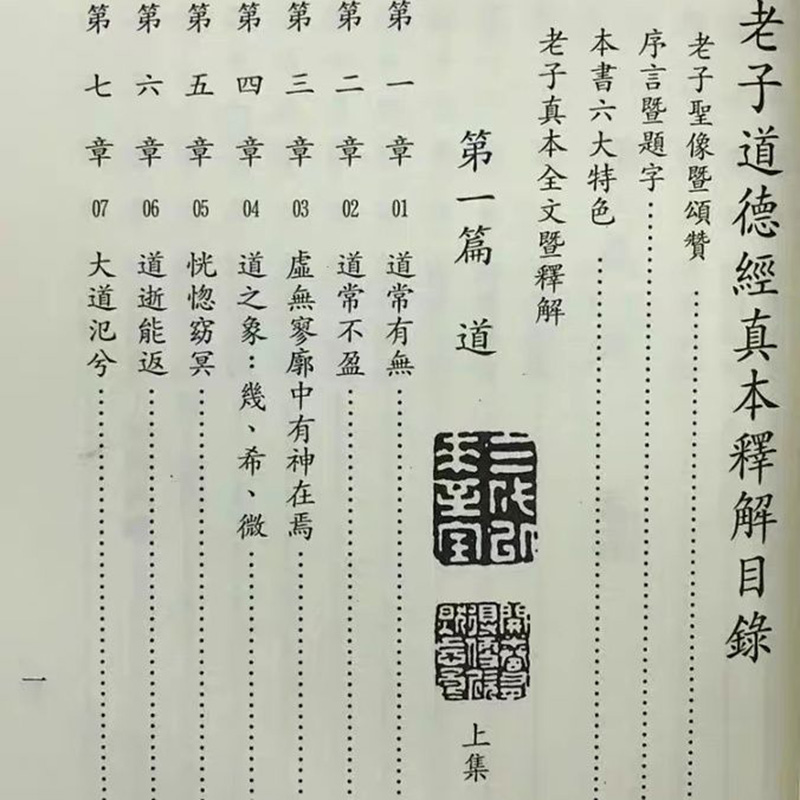 老子道德經真本釋解目錄
老子聖像暨頌贊
序言暨題字
本書六大特色
老子真本全文暨釋解
第一篇 道
上集
第一章 01 道常有無
第二章 02 道常不盈
第三章 03 虛無寥廓中有神在焉
第四章 04 道之象：幾、希、微
第五章 05 恍惚窈冥
第六章 06 道逝能返
第七章 07 大道氾兮
一